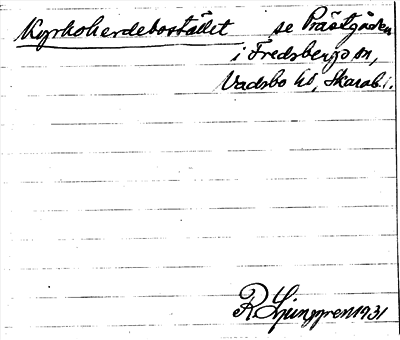 Kyrkoherdebostället se Prästgården
i Fredsbergs sn,
Vadsbo hd, Skarab. l.
R. Ljunggren 1931